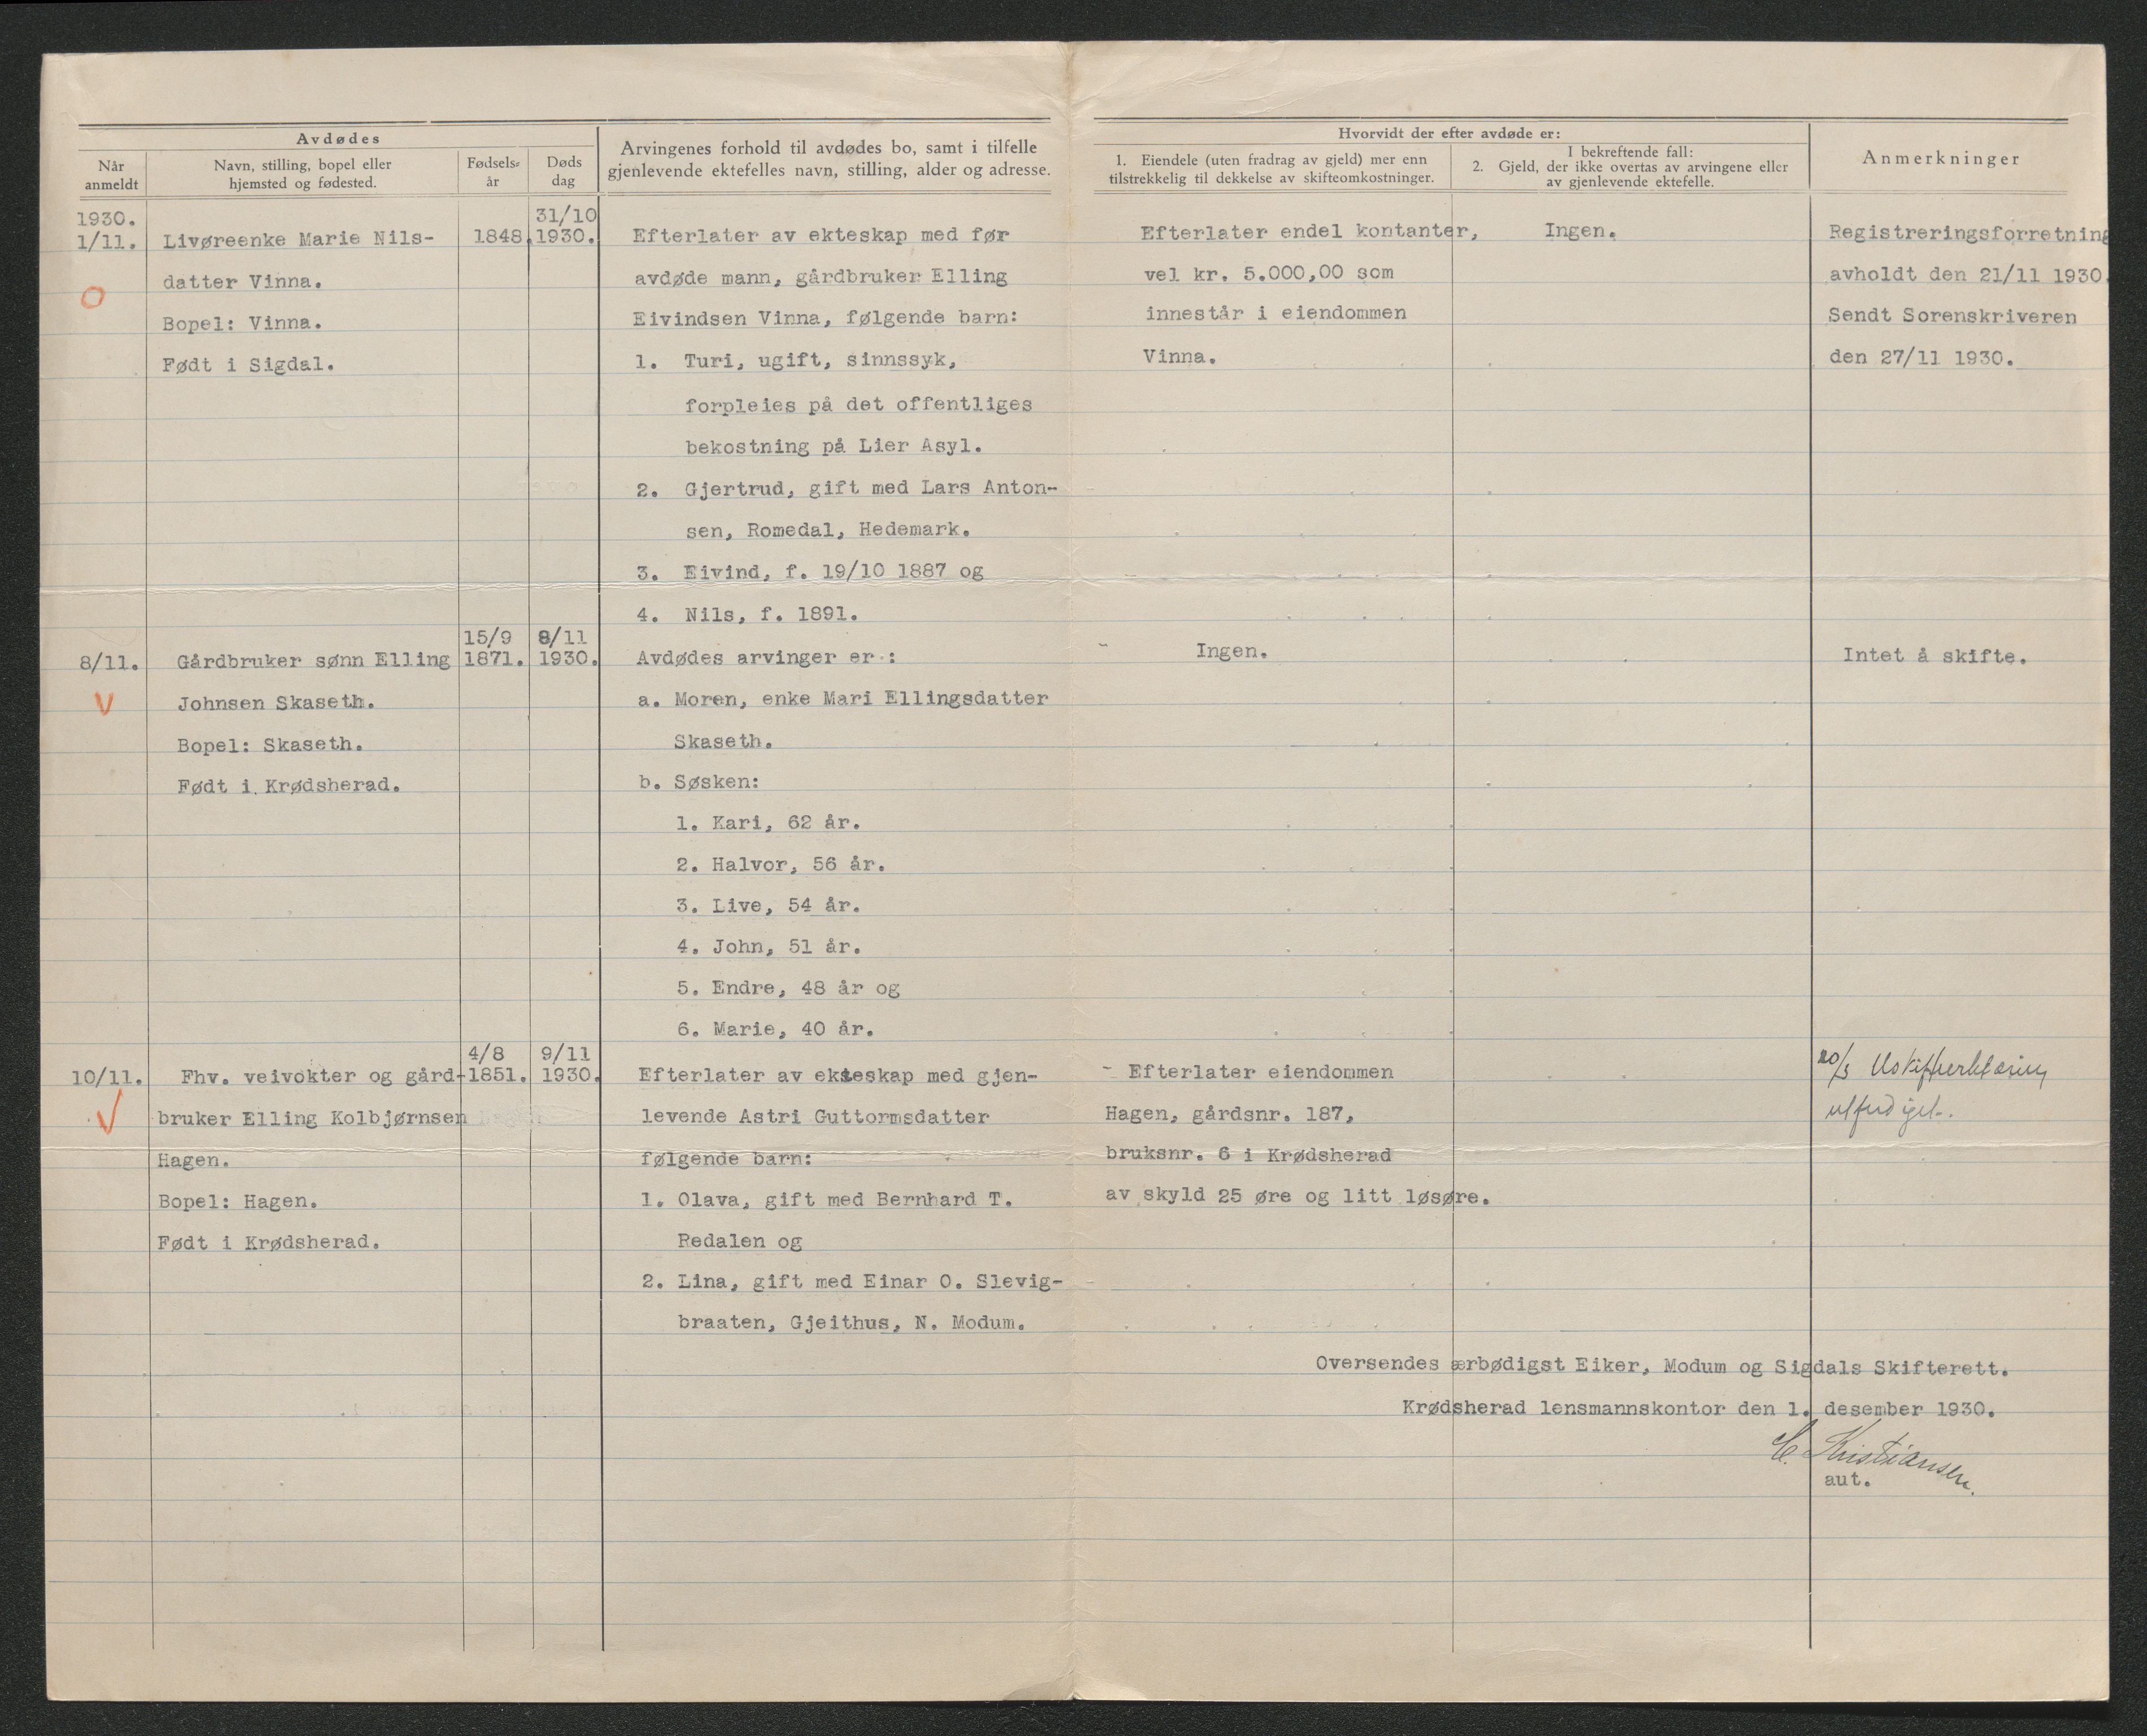 Avdødes
Når
anmeldt
Navn, stilling, bopel eller
hjemsted og fødested.
Fødsels=
år
Døds
dag
Arvingenes forhold til avdødes bo, samt i tilfelle
gjenlevende ektefelles navn, stilling, alder og adresse.
Hvorvidt der efter avdøde er:
1. Eiendele (uten fradrag av gjeld) mer enn
tilstrekkelig til dekkelse av skifteomkostninger.
I bekreftende fall:
2. Gjeld, der ikke overtas av arvingene eller
av gjenlevende ektefelle.
Anmerkninger
1930.
1/11.
Livøreenke Marie Nils-
datter Vinna.
Bopel: Vinna.
Født i Sigdal.
1848.
31/10
1930.
Efterlater av ekteskap med før
avdøde mann, gårdbruker Elling
Eivindsen Vinna, følgende barn:
1. Turi, ugift, sinnssyk,
forpleies på det offentliges
bekostning på Lier Asyl.
2. Gjertrud, gift med Lars Anton-
sen, Romedal, Hedemark.
3. Eivind, f. 19/10 1887 og
4. Nils, f. 1891.
Efterlater endel kontanter,
vel kr. 5.000,00 som
innestår i eiendommen
Vinna.
Ingen.
Registreringsforretning
avholdt den 21/11 1930.
Sendt Sorenskriveren
den 27/11 1930.
8/11.
Gårdbruker sønn Elling
Johnsen Skaseth.
Bopel: Skaseth.
Født i Krødsherad.
15/9
1871.
8/11
1930.
Avdødes arvinger er :
a. Moren, enke Mari Ellingsdatter
Skaseth.
b. Søsken:
1. Kari, 62 år.
2. Halvor, 56 år.
3. Live, 54 år.
4. John, 51 år.
5. Endre, 48 år og
6. Marie, 40 år.
Ingen.
Intet å skifte.
10/11.
Fhv. veivokter og gård-
bruker Elling Kolbjørnsen
Hagen.
Bopel: Hagen.
Født i Krødsherad.
4/8
1851.
9/11
1930.
Efterlater av ekteskap med gjen-
levende Astri Guttormsdatter
følgende barn:
1. Olava, gift med Bernhard T.
Redalen og
2. Lina, gift med Einar O. Slevig-
braaten, Gjeithus, N. Modum.
Efterlater eiendommen
Hagen, gårdsnr. 187,
bruksnr. 6 i Krødsherad
av skyld 25 øre og litt løsøre.
Uskifteerklæring
utferdiget.
Oversendes ærbødigst Eiker, Modum og Sigdals Skifterett.
Krødsherad lensmannskontor den 1. desember 1930.
Kristiansen.
aut.